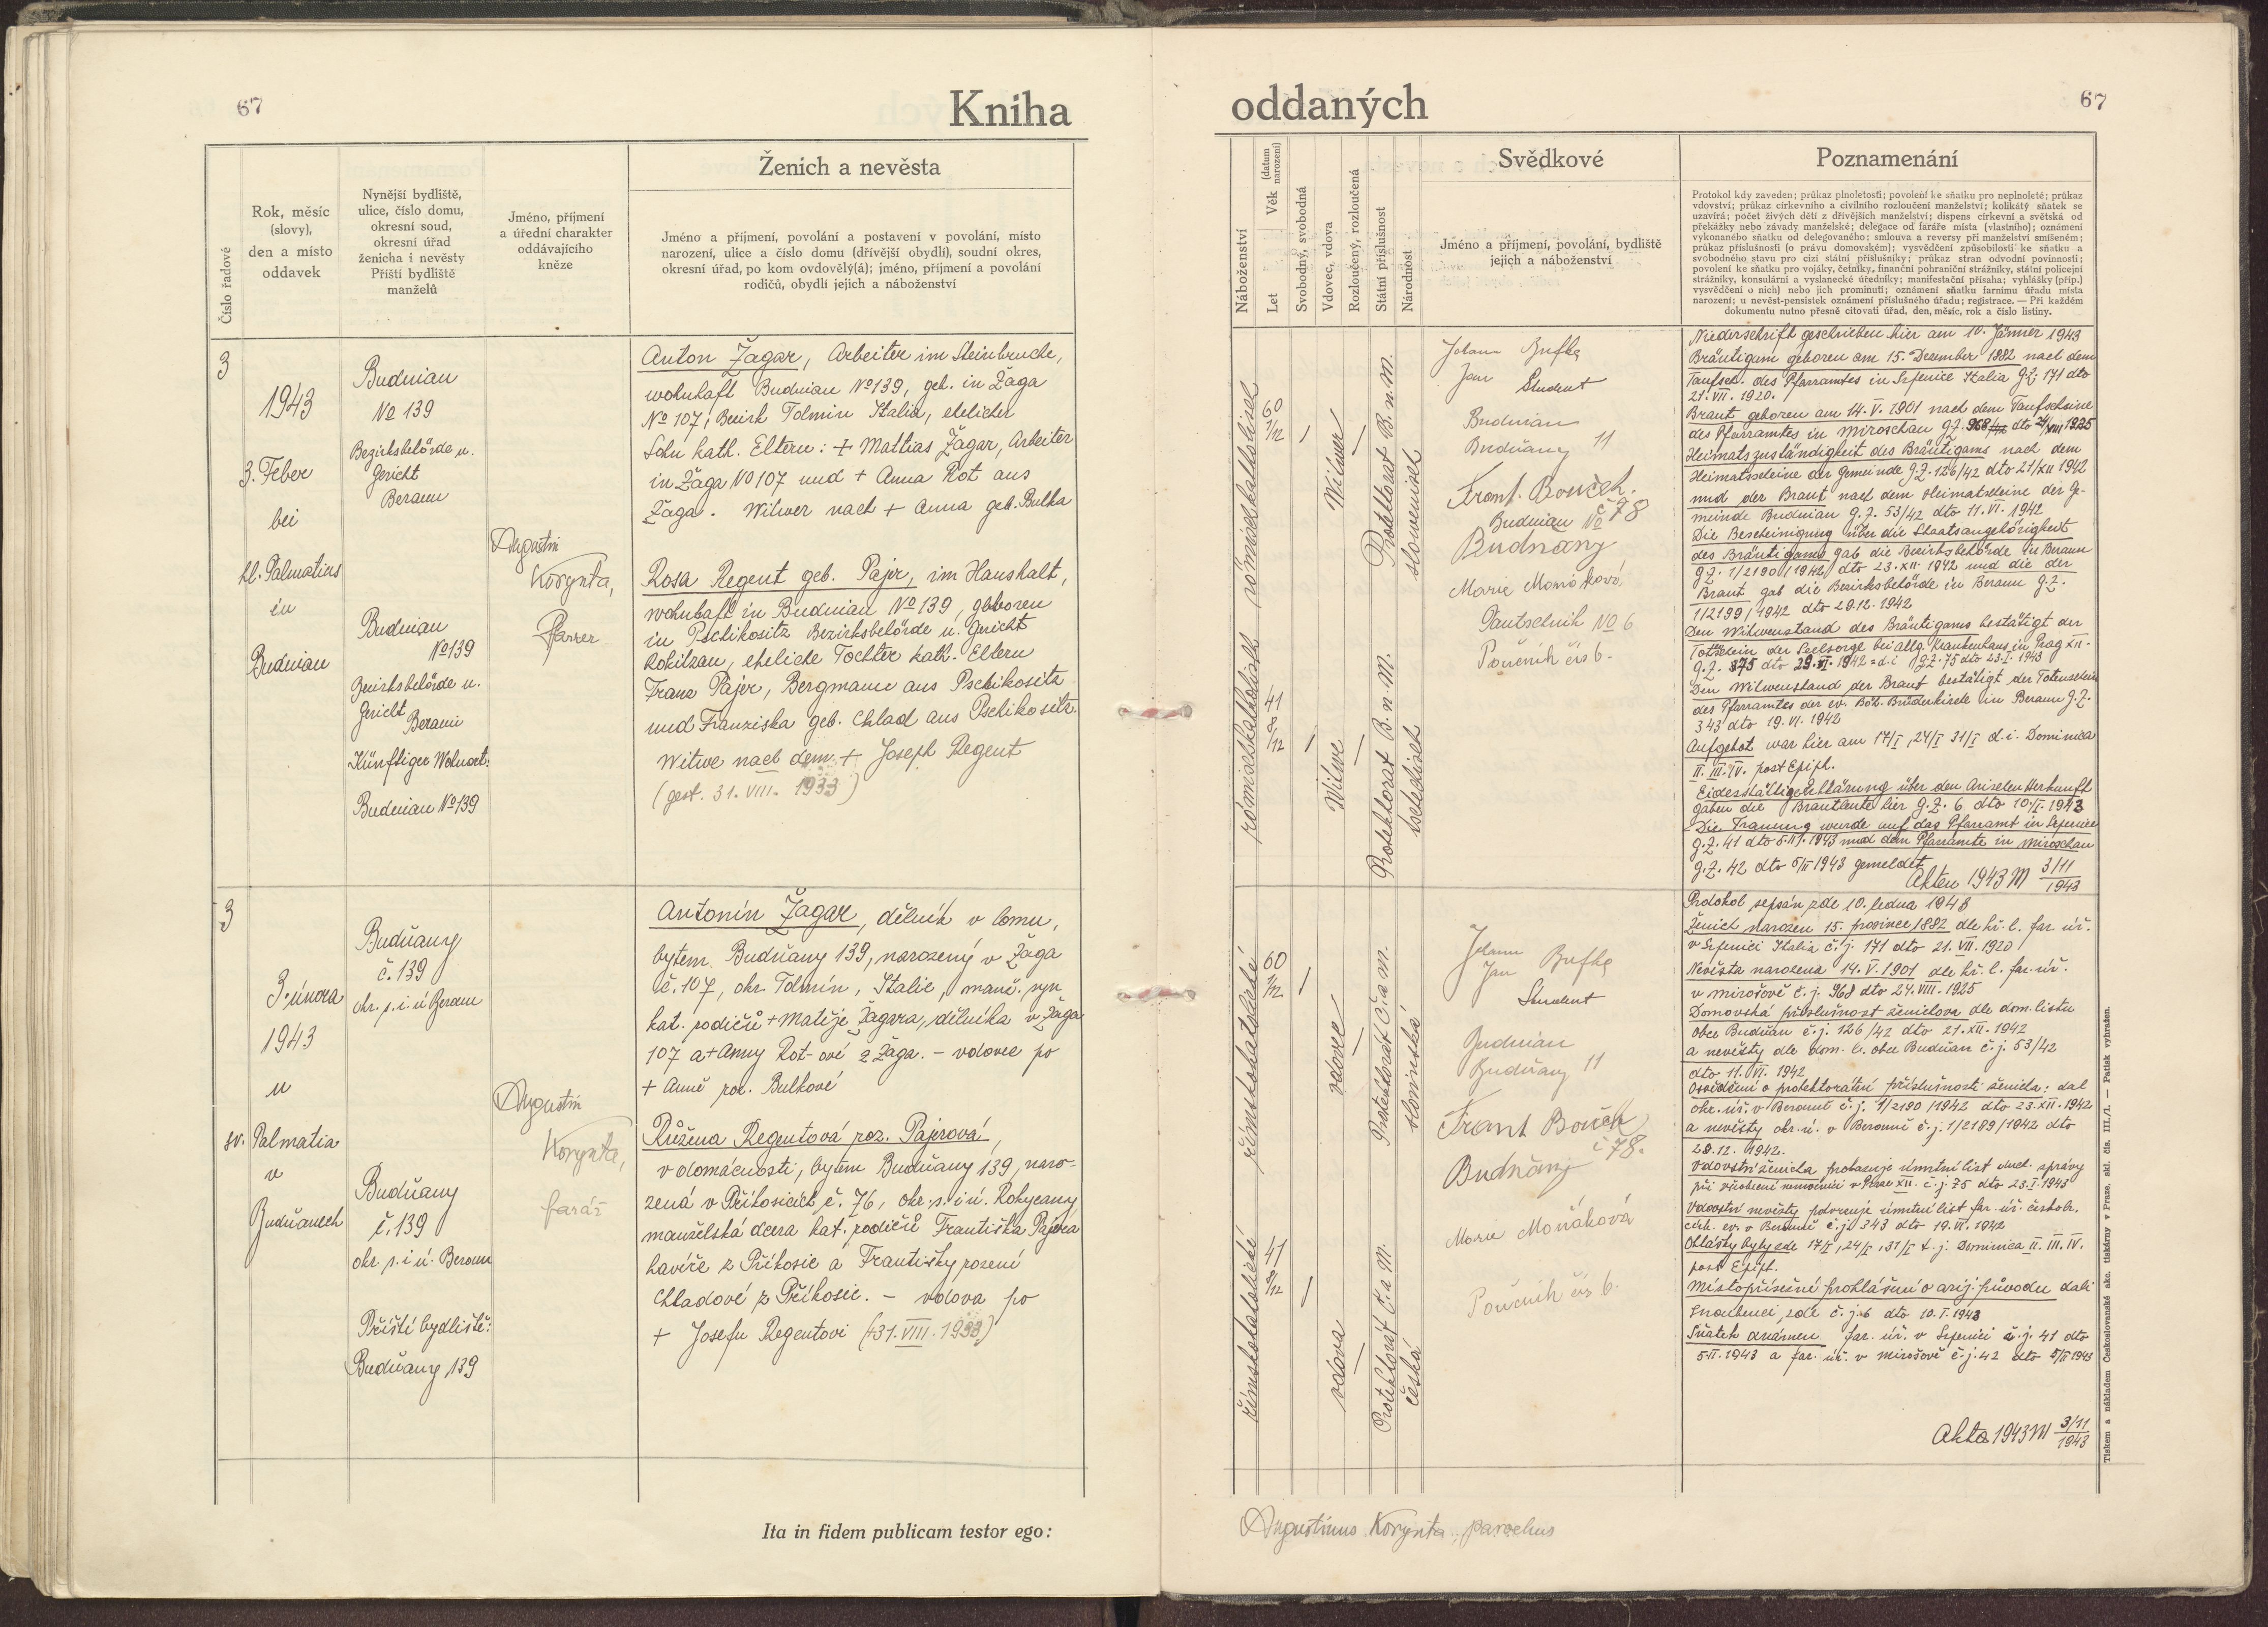 67
Kniha
Číslo řadové
Rok, měsíc
(slovy),
den a místo
oddavek
Nynější bydliště,
ulice, číslo domu,
okresní soud,
okresní úřad
ženicha i nevěsty
Příští bydliště
manželů
Jméno, příjmení
a úřední charakter
oddávajícího
kněze
Ženich a nevěsta
Jméno a příjmení, povolání a postavení v povolání, místo
narození, ulice a číslo domu (dřívější obydlí), soudní okres,
okresní úřad, po kom ovdověly(á); jméno, příjmení a povolání
rodičů, obydlí jejich a náboženství
3
1943
3. Feber
bei
hl. Palmatius
in
Budnian
Budnian
No 139
Bezirksbehörde u.
Gericht
Beraun
Budnian
No 139
Bezirksbehörde u.
Gericht
Beraun
Künftiger Wohnort:
Budnian No 139
Augustin
Korynta,
Pfarrer
Anton Žagar, Arbeiter im Steinbruche,
wohnhaft Budnian No 139, geb. in Žaga
No 107, Bezirk Tolmin Italia, ehelicher
Sohn kath. Eltern: + Mathias Žagar, Arbeiter
in Žaga No 107 und + Anna Rot aus
Žaga. Witwer nach + Anna geb. Bulka
Rosa Regent geb. Pajer, im Haushalt,
wohnhaft in Budnian No 139, geboren
in Pschikositz Bezirksbehörde u. Gericht
Rokitzan, eheliche Tochter kath. Eltern
Franz Pajer, Bergmann aus Pschikositz
und Franziska geb. Chlad aus Pschikositz.
Witwe nach dem + Joseph Regent
(gest. 31. VIII. 1933)
3
3. února
1943
u
sv. Palmatia
v
Budňanech
Budňany
č. 139
okr. s. i ú Beroun
Budňany
č. 139
okr. s. i ú. Beroun
Příští bydliště:
Budňany 139
Augustin
Korynta,
farář
Antonín Žagar, dělník v lomu,
bytem Budňany 139, narozený v Žaga
č. 107, okr. Tolmín, Italie, manž. syn
kat. rodičů + Matěje Žagara, dělníka v Žaga
107 a + Anny Rot-ové z Žaga. – vdovec po
+ Anně roz. Bulkové
Růžena Regentová roz. Pajerová,
v domácnosti, bytem Budňany 139, naro-
zená v Příkosicích č. 76, okr. s. i ú. Rokycany,
manželská dcera kat. rodičů Františka Pajera
havíře z Příkosic a Františky rození
Chladové z Příkosic. – vdova po
+ Josefu Regentovi (+31. VIII. 1933)
Ita in fidem publicam testor ego:
oddaných
67
Náboženství
Věk (datum narození)
Let
Svobodný, svobodná
Vdovec, vdova
Rozloučený, rozloučená
Státní příslušnost
Národnost
Svědkové
Jméno a příjmení, povolání, bydliště
jejich a náboženství
Poznamenání
Protokol kdy zaveden; průkaz plnoletosti; povolení ke sňatku pro neplnoleté; průkaz
vdovství; průkaz církevního a civilního rozloučení manželství; kolikátý sňatek se
uzavírá; počet živých dětí z dřívějších manželství; dispens církevní a světská od
překážky nebo závady manželské; delegace od faráře místa (vlastního); oznámení
vykonaného sňatku od delegovaného; smlouva a reversy při manželství smíšeném;
průkaz příslušnosti (o právu domovském); vysvědčení způsobilosti ke sňatku a
svobodného stavu pro cizí státní příslušníky; průkaz stran odvodní povinnosti;
povolení ke sňatku pro vojáky, četníky, finanční pohraniční strážníky, státní policejní
strážníky, konsulární a vyslanecké úředníky; manifestační přísaha; vyhlášky (příp.)
vysvědčení o nich) nebo jich prominutí; oznámení sňatku farnímu úřadu místa
narození; u nevěst-pensistek oznámení příslušného úřadu; registrace. — Při každém
dokumentu nutno přesně citovati úřad, den, měsíc, rok a číslo listiny.
römischkatholisch
60
1/12
Witwer
Protektorat B. n. M.
slowenisch
römischkatholisch
41
8/12
Witwe
Protektorat B. n. M.
tschechisch
Johann
Jan
Student
Budnian
Budňany 11
Frant. Bouček.
Budnian No č 78
Budňany
Marie Moňáková,
Pautschnik No 6
Poučník čís 6.
Niederschrift geschrieben hier am 10. Jänner 1943
Bräutigam geboren am 15. Dezember 1882 nach dem
Taufsch. des Pfarramtes in Srpenice Italia g. Z. 171 dto
21. VII. 1920.
Braut geboren am 14. V. 1901 nach dem Taufscheine
des Pfarramtes in Miroschau g. Z. 968 dto 24/VIII 1925
Heimatszuständigkeit des Bräutigams nach dem
Heimatsscheine der Gemeinde g. Z. 126/42 dto 21/XII 1942
und der Braut nach dem Heimatscheine der Ge-
meinde Budnian g. Z. 53/42 dto 11. VI. 1942
Die Bescheinigung über die Staatsangehörigkeit
des Bräutigams gab die Bezirksbehörde in Beraun
g. Z. 1/2190/1942 dto 23. XII. 1942 und die der
Braut gab die Bezirksbehörde in Beraun g. Z.
1/2199/1942 dto 28.12.1942
Den Witwenstand des Bräutigams bestätigt der
Totschein der Seelsorge bei Allg. Krankenhaus in Prag XII.
g. Z. 75 dto 23. I. 1943
Den Witwenstand der Braut bestätigt der Totenschein
des Pfarramtes der ev. Böh. Brüderkirche in Beraun g. Z.
343 dto 19. VI. 1942
Aufgebot war hier am 17/I, 24/I 31/I d. i. Dominica
II. III. IV. post Epiph.
Eidesstättige Erklärung über den Arischen Herkunft
gaben die Brautleute hier g. Z. 6 dto 10/I. 1943
Die Trauung wurde auf das Pfarramt in Srpenice
g. Z. 41 dto 5. II. 1943 und dem Pfarramte in Miroschau
g. Z. 42 dto 5/II 1943 gemeldet
Akten 1943 M 3/11 1943
římskokatolické
60
1/12
vdovec
Protektorát Č. a M.
slovinská
římskokatolické
41
8/12
vdova
Protektorát Č. a M.
česká
Johann
Jan
Student
Budnian
Budňany 11
Frant Bouček
č 78.
Budňany
Marie Moňáková
Poučník čís 6.
Protokol sepsán zde 10. ledna 1943
Ženich narozen 15. prosince 1882 dle kř. l. far. úř.
v Srpenici Italia č. j. 171 dto 21. VII. 1920
Nevěsta narozená 14. V. 1901 dle kř. l. far. úř.
v Mirošově č. j. 968 dto 24. VIII. 1925
Domovská příslušnost ženichova dle dom. listu
obce Budňan č. j. 126/42 dto 21. XII. 1942
a nevěsty dle dom. l. obce Budňan č. j. 53/42
dto 11. VI. 1942
Osvědčení o protektorátní příslušnosti ženicha: dal
okr. úř. v Berouně č. j. 1/2190/1942 dto 23. XII. 1942
a nevěsty okr. ú. v Berouně č. j. 1/2189/1942 dto
28. 12. 1942.
Vdovství ženicha prokazuje úmrtní list duch. správy
při všeobecné nemocnici v Praze XII. č. j. 75 dto 23. I. 1943
Vdovství nevěsty potvrzuje úmrtní list far. úř. českobr.
círk. ev. v Berouně č. j. 343 dto 19. VI. 1942
Ohlášky byly zde 17/I, 24/I, 31/I t. j. Dominica II. III. IV.
post Epiph.
Místopřísežné prohlášení o arij. původu dali
Snoubenci, zde č. j. 6 dto 10. I. 1943
Sňatek oznámen far. úř. v Srpenici č. j. 41 dto
5. II. 1943 a far. úř. v Mirošově č. j. 42 dto 5/II 1943
Akta 1943 M 3/11 1943
Augustinus Korynta, parochus
Tiskem a nákladem Československé akc. tiskárny v Praze, skl. čís. III./1. — Patisk vyhražen.